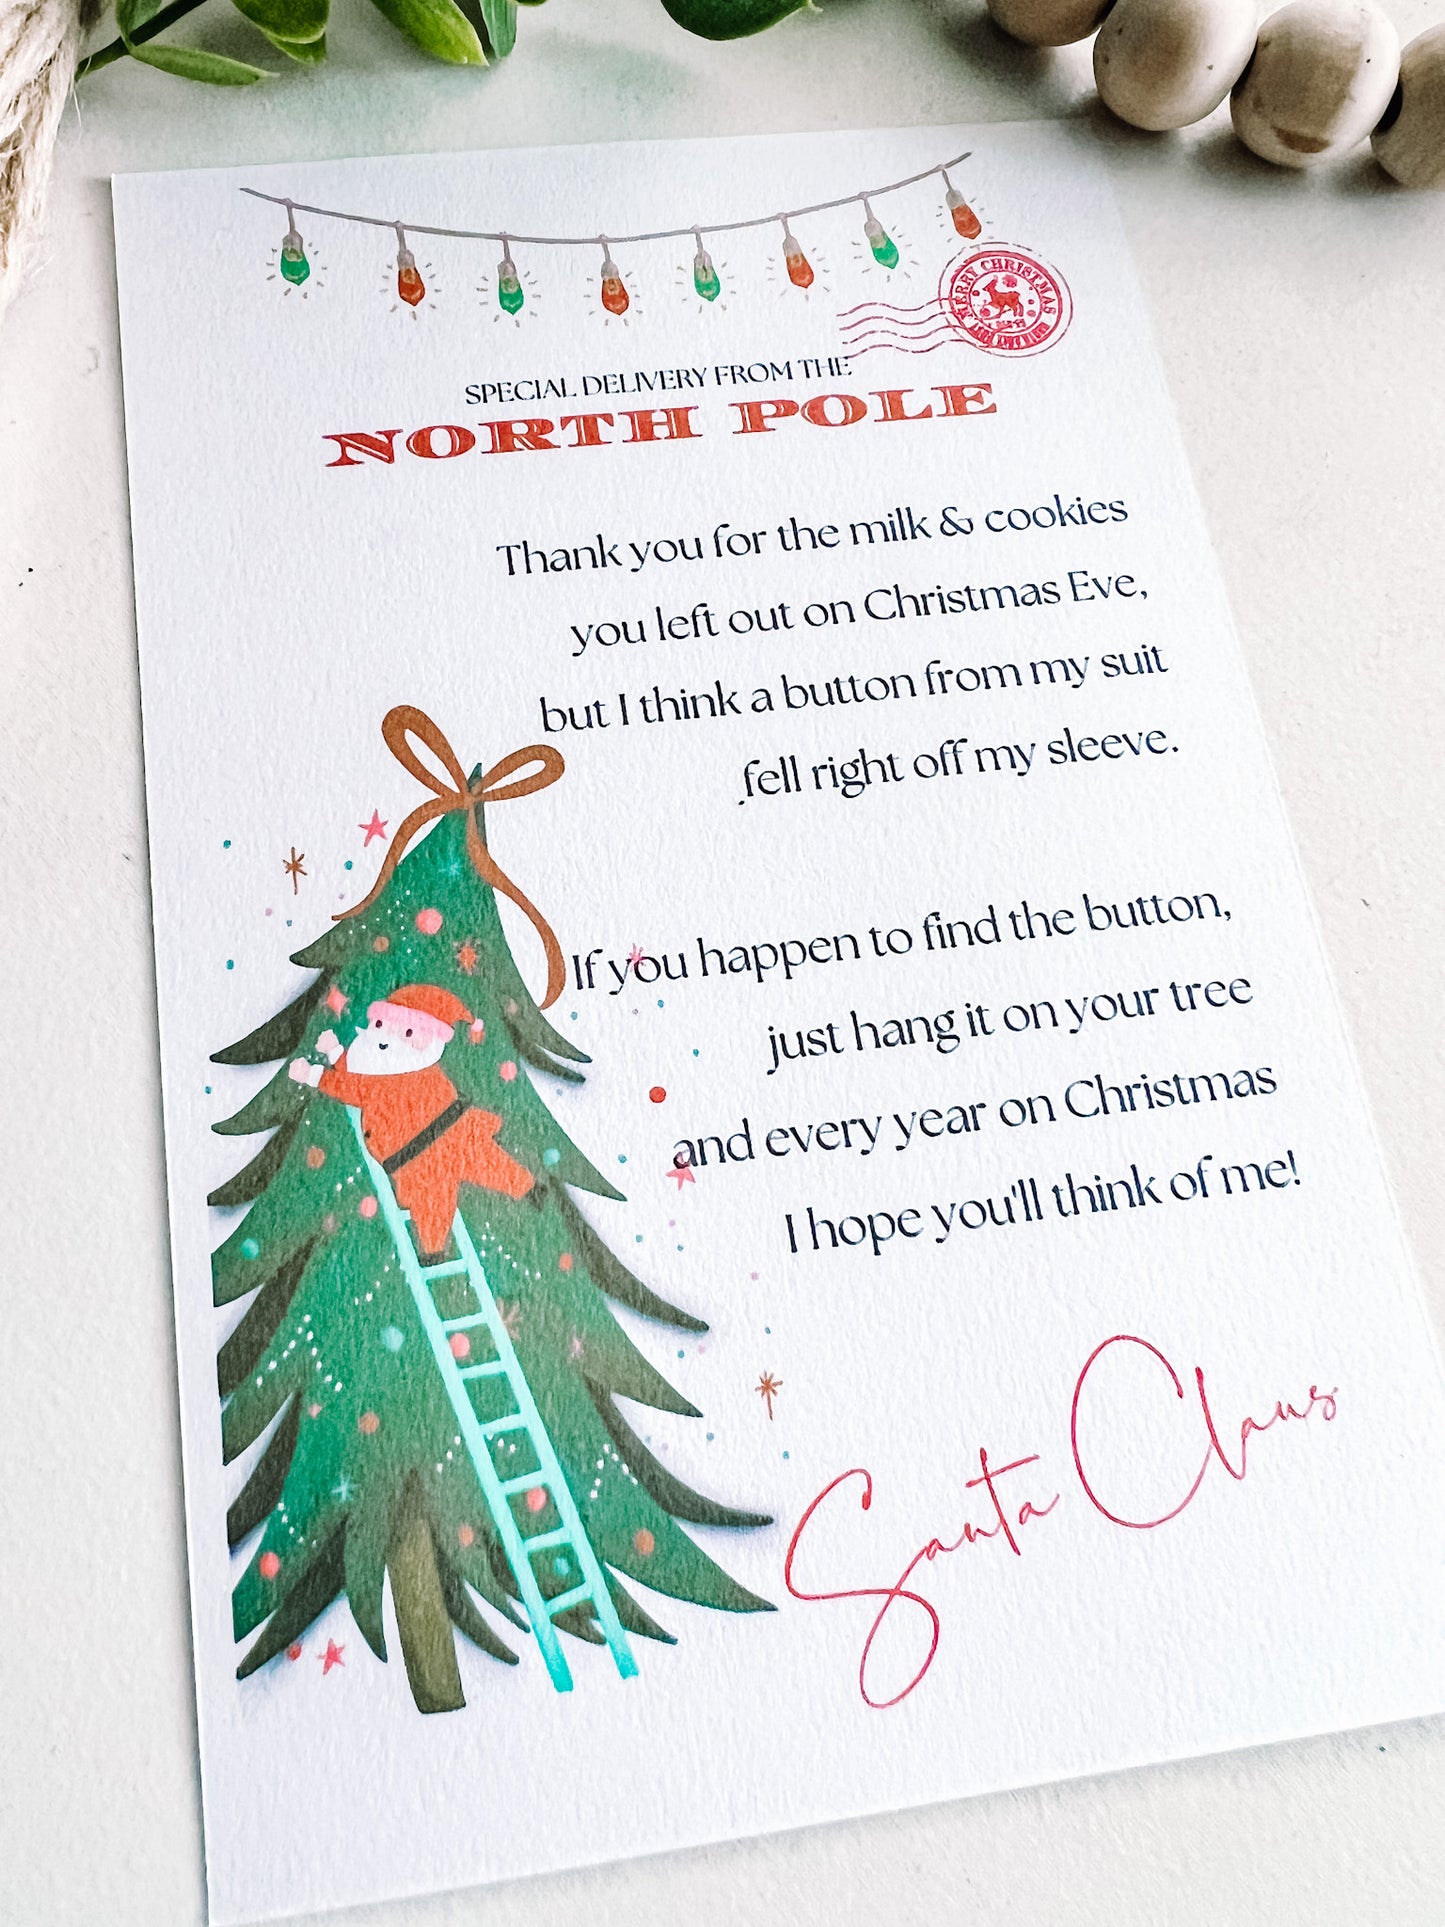 MERRY CHRISTMAS
SPECIAL DELIVERY FROM THE
NORTH POLE
Thank you for the milk & cookies
you left out on Christmas Eve,
but I think a button from my suit
fell right off my sleeve.
If you happen to find the button,
just hang it on your tree
and every year on Christmas
I hope you'll think of me!
Santa Claus